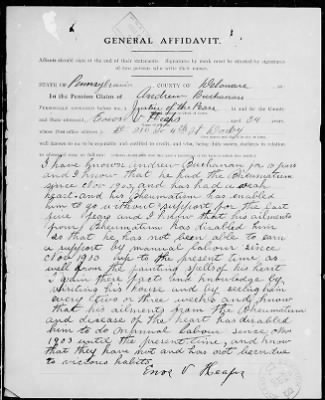 GENERAL AFFIDAVIT.
Affiants should sign at the end of their statements. Signatures by mark must be attested by signatures
of two persons who write their names.
STATE OF Pennsylvania COUNTY OF Delaware
In the Pension Claims of Andrew Buchanan
Personally appeared before me, a Justice of the Peace in and for the County
and State aforesaid, Enos V Heaps aged 34
I have known Andrew Buchanan for 10 years
and I know that he had the Rheumatism
since Nov 1903, and has had a weak
heart and his Rheumatism has disabled
him to go without support for the last
five years and I know that his ailments
from Rheumatism has disabled him
so that he has not been able to earn
a support by manual labour since
Nov 1903 up to the present time, as
well from the fainting spells of his heart
I gain these facts and knowledge by
visiting his house and by seeing him
every two or three weeks and know
that his ailments from the Rheumatism
and disease of the heart has disabled
him to do manual labour since Nov
1903 until the present time, and know
that they have not and has not been due
to vicious habits.
Enos V Heaps